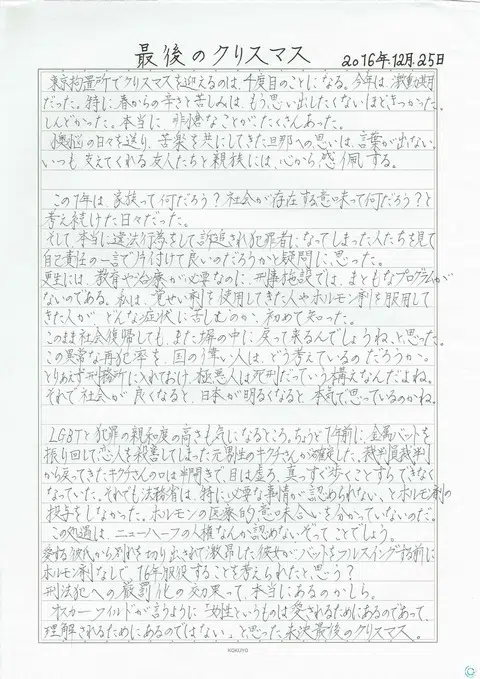 最後のクリスマス　2016年12月25日
東京拘置所でクリスマスを迎えるのは、4度目のことになる。今年は、激動期
だった。特に、春からの辛さと苦しみは、もう思い出したくないほどきつかった。
しんどかった。本当に、非情なことがたくさんあった。
懊悩の日々を送り、苦楽を共にしてきた旦那への思いは、言葉が出ない。
いつも支えてくれる友人たちと親族には、心から感佩する。
この1年は、家族って何だろう？社会が存在する意味って何だろう？と
考え続けた日々だった。
そして、本当に違法行為をして訴追され犯罪者になってしまった人たちを見て
自己責任の一言で片付けて良いのだろうかと疑問に思った。
更生には、教育や治療が必要なのに、刑事施設では、まともなプログラムが
ないのである。私は、覚せい剤を使用してきた人やホルモン剤を服用して
きた人が、どんな症状に苦しむのか、初めて知った。
このまま社会復帰しても、また塀の中に戻って来るんでしょうね、と思った。
この異常な再犯率を、国の偉い人は、どう考えているのだろうか。
とりあえず刑務所に入れておけ、極悪人は死刑だっていう構えなんだよね。
それで社会が良くなると、日本が明るくなると、本気で思っているのかね。
LGBTと犯罪の親和度の高さも気になるところ。ちょうど1年前に、金属バットを
振り回して恋人を殺害してしまった元男性のキクチさんが 裁判員裁判
から戻ってきたキクチさんの口は半開きで、目は虚ろ、真っすぐ歩くことすらできなく
なっていた。それでも法務省は、特に必要な事情が認められない、とホルモン剤の
投与をしなかった。ホルモンの医療的意味合いを分かっていないのだ。
この処遇は、ニューハーフの人権なんか認めないぞってことでしょう。
愛する彼氏から別れを切り出されて激昂した彼女がバットをフルスイングする前に
ホルモン剤なしで、16年服役することを考えられたと、思う？
刑法犯への厳罰化の効果って、本当にあるのかしら。
オスカーワイルドが言うように「女性というものは愛されるためにあるのであって、
理解されるためにあるのではない」と思った未決最後のクリスマス。
KOKUYO